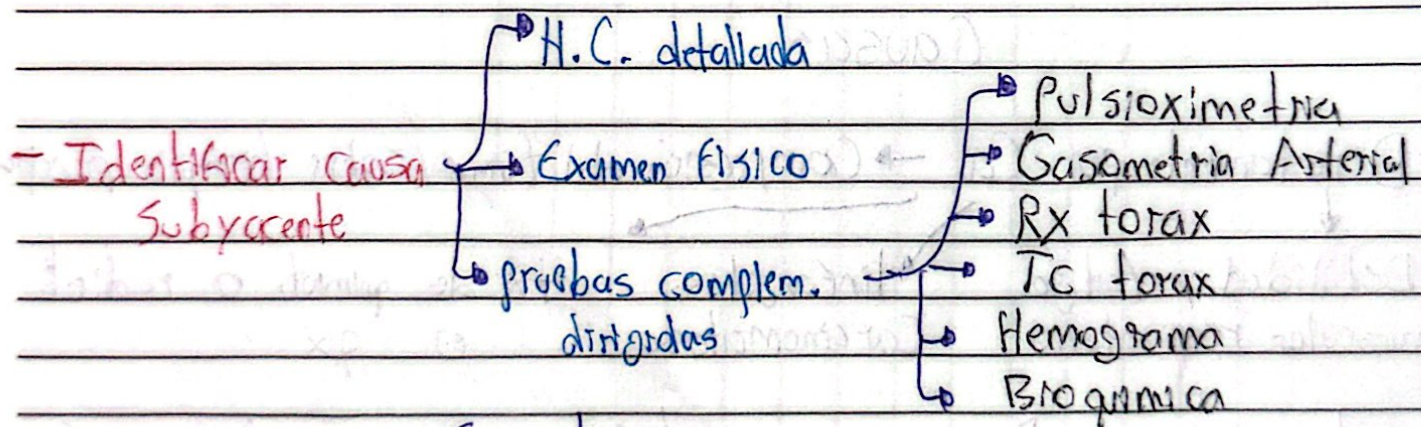 H.C. detallada
- Identificar causa
subyacente
Examen físico
pruebas complem.
dirigidas
Pulsioximetria
Gasometria Arterial
Rx torax
Tc torax
Hemograma
Bioquimica